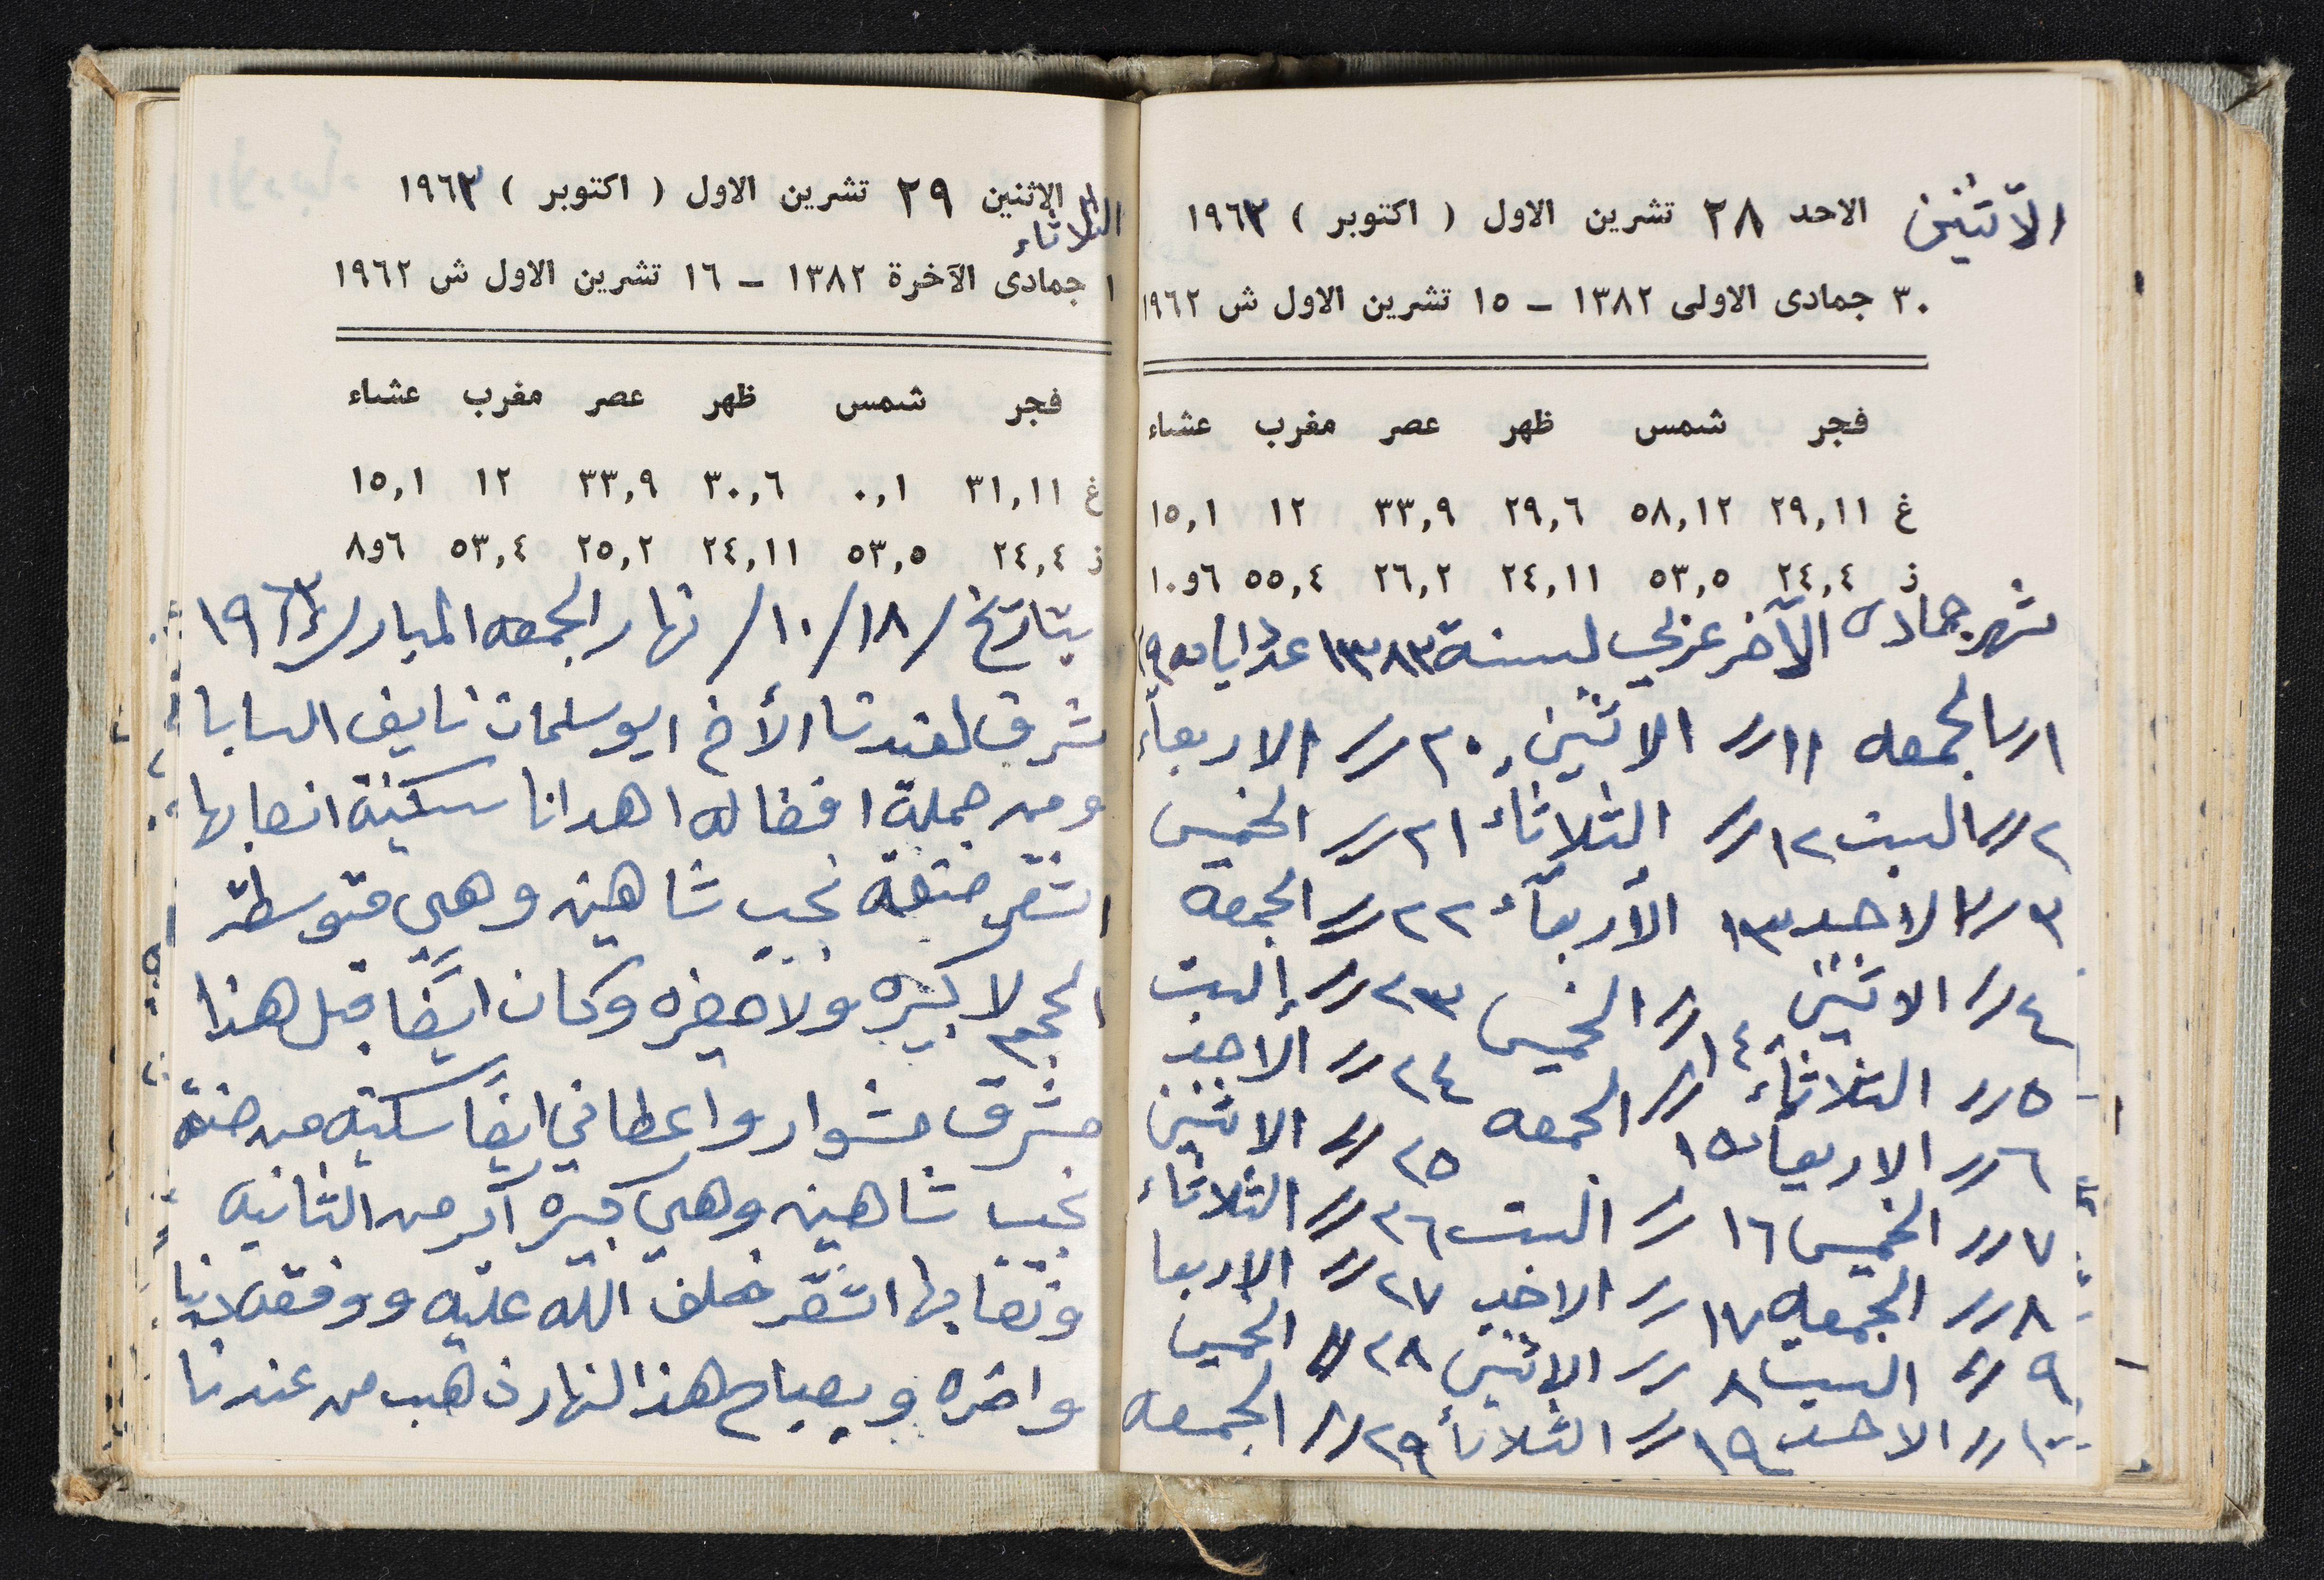 الاثنين الاحد ٢٨ تشرين الاول ( اكتوبر ) ١٩٦٣
٣٠ جمادى الاولى ١٣٨٢ – ١٥ تشرين الاول ش ١٩٦٢
فجر شمس ظهر عصر مغرب عشاء
غ ٢٩,١١ ٥٨,١٢ ٢٩,٦ ٣٣,٩ ١٢ ١٥,١
ز ٢٤,٤ ٥٣,٥ ٢٤,١١ ٢٦,٢ ٥٥,٤ ٦و١٠
شهر جمادى الآخر عربي لسنة ١٣٨٣ عدد ايامه ٢٩
١ // الجمعه ١١ // الاثنين ٢٠ // الاربعآء
٢ // السبت ١٢ // الثلاثاء ٢١ // الخميس
٣ // الاحد ١٣ الأربعآء ٢٢ // الجمعه
٤ // الاثنين ١٤ // الخميس ٢٣ // السبت
٥ // الثلاثآء // الجمعه ٢٤ // الاحد
٦ // الاربعاء ١٥ ٢٥ // الاثنين
٧ // الخميس ١٦ // السبت ٢٦ // الثلاثاء
٨ // الجمعه ١٧ // الاحد ٢٧ // الاربعا
٩ // السبت ٨ // الاثنين ٢٨ // الخميس
١٠ // الاحد ١٩ // الثلاثأ ٢٩ // الجمعه
الاثنين ٢٩ تشرين الاول ( اكتوبر ) ١٩٦٣
الثلاثاء
١ جمادى الآخرة ١٣٨٢ – ١٦ تشرين الاول ش ١٩٦٢
فجر شمس ظهر عصر مغرب عشاء
غ ٣١,١١ ٠,١ ٣٠,٦ ٣٣,٩ ١٢ ١٥,١
ز ٢٤,٤ ٥٣,٥ ٢٤,١١ ٢٥,٢ ٥٣,٤ ٦و٨
بتاريخ / ١٨/ ١٠/ نهار الجمعه المبارك ١٩٦٣
شرف لعندنا الأخ ابو سلمان نايف البابا
ومن جملة افضاله اهدانا سكينة انصابها
اشقر صنعة نجيب شاهين وهي متوسطة
الحجم لا كبيره ولا صغيره وكان ايضًا قبل هذا
مشرف مشوار واعطاني ايضًا سكينه من صنعة
نجيب شاهين وهي كبيره أكبر من الثانيه
ونصابها اشقر خلف الله عليه ووفقه دنيا
واخره وبصباح هذا النهار ذهب من عندنا